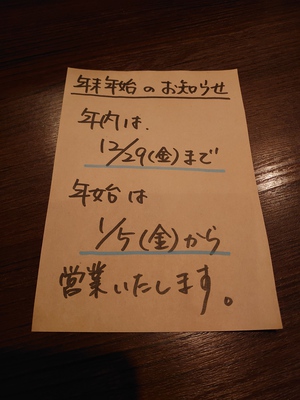 年末年始のお知らせ
年内は、
12/29(金)まで
年始は
1/5(金)から
営業いたします。